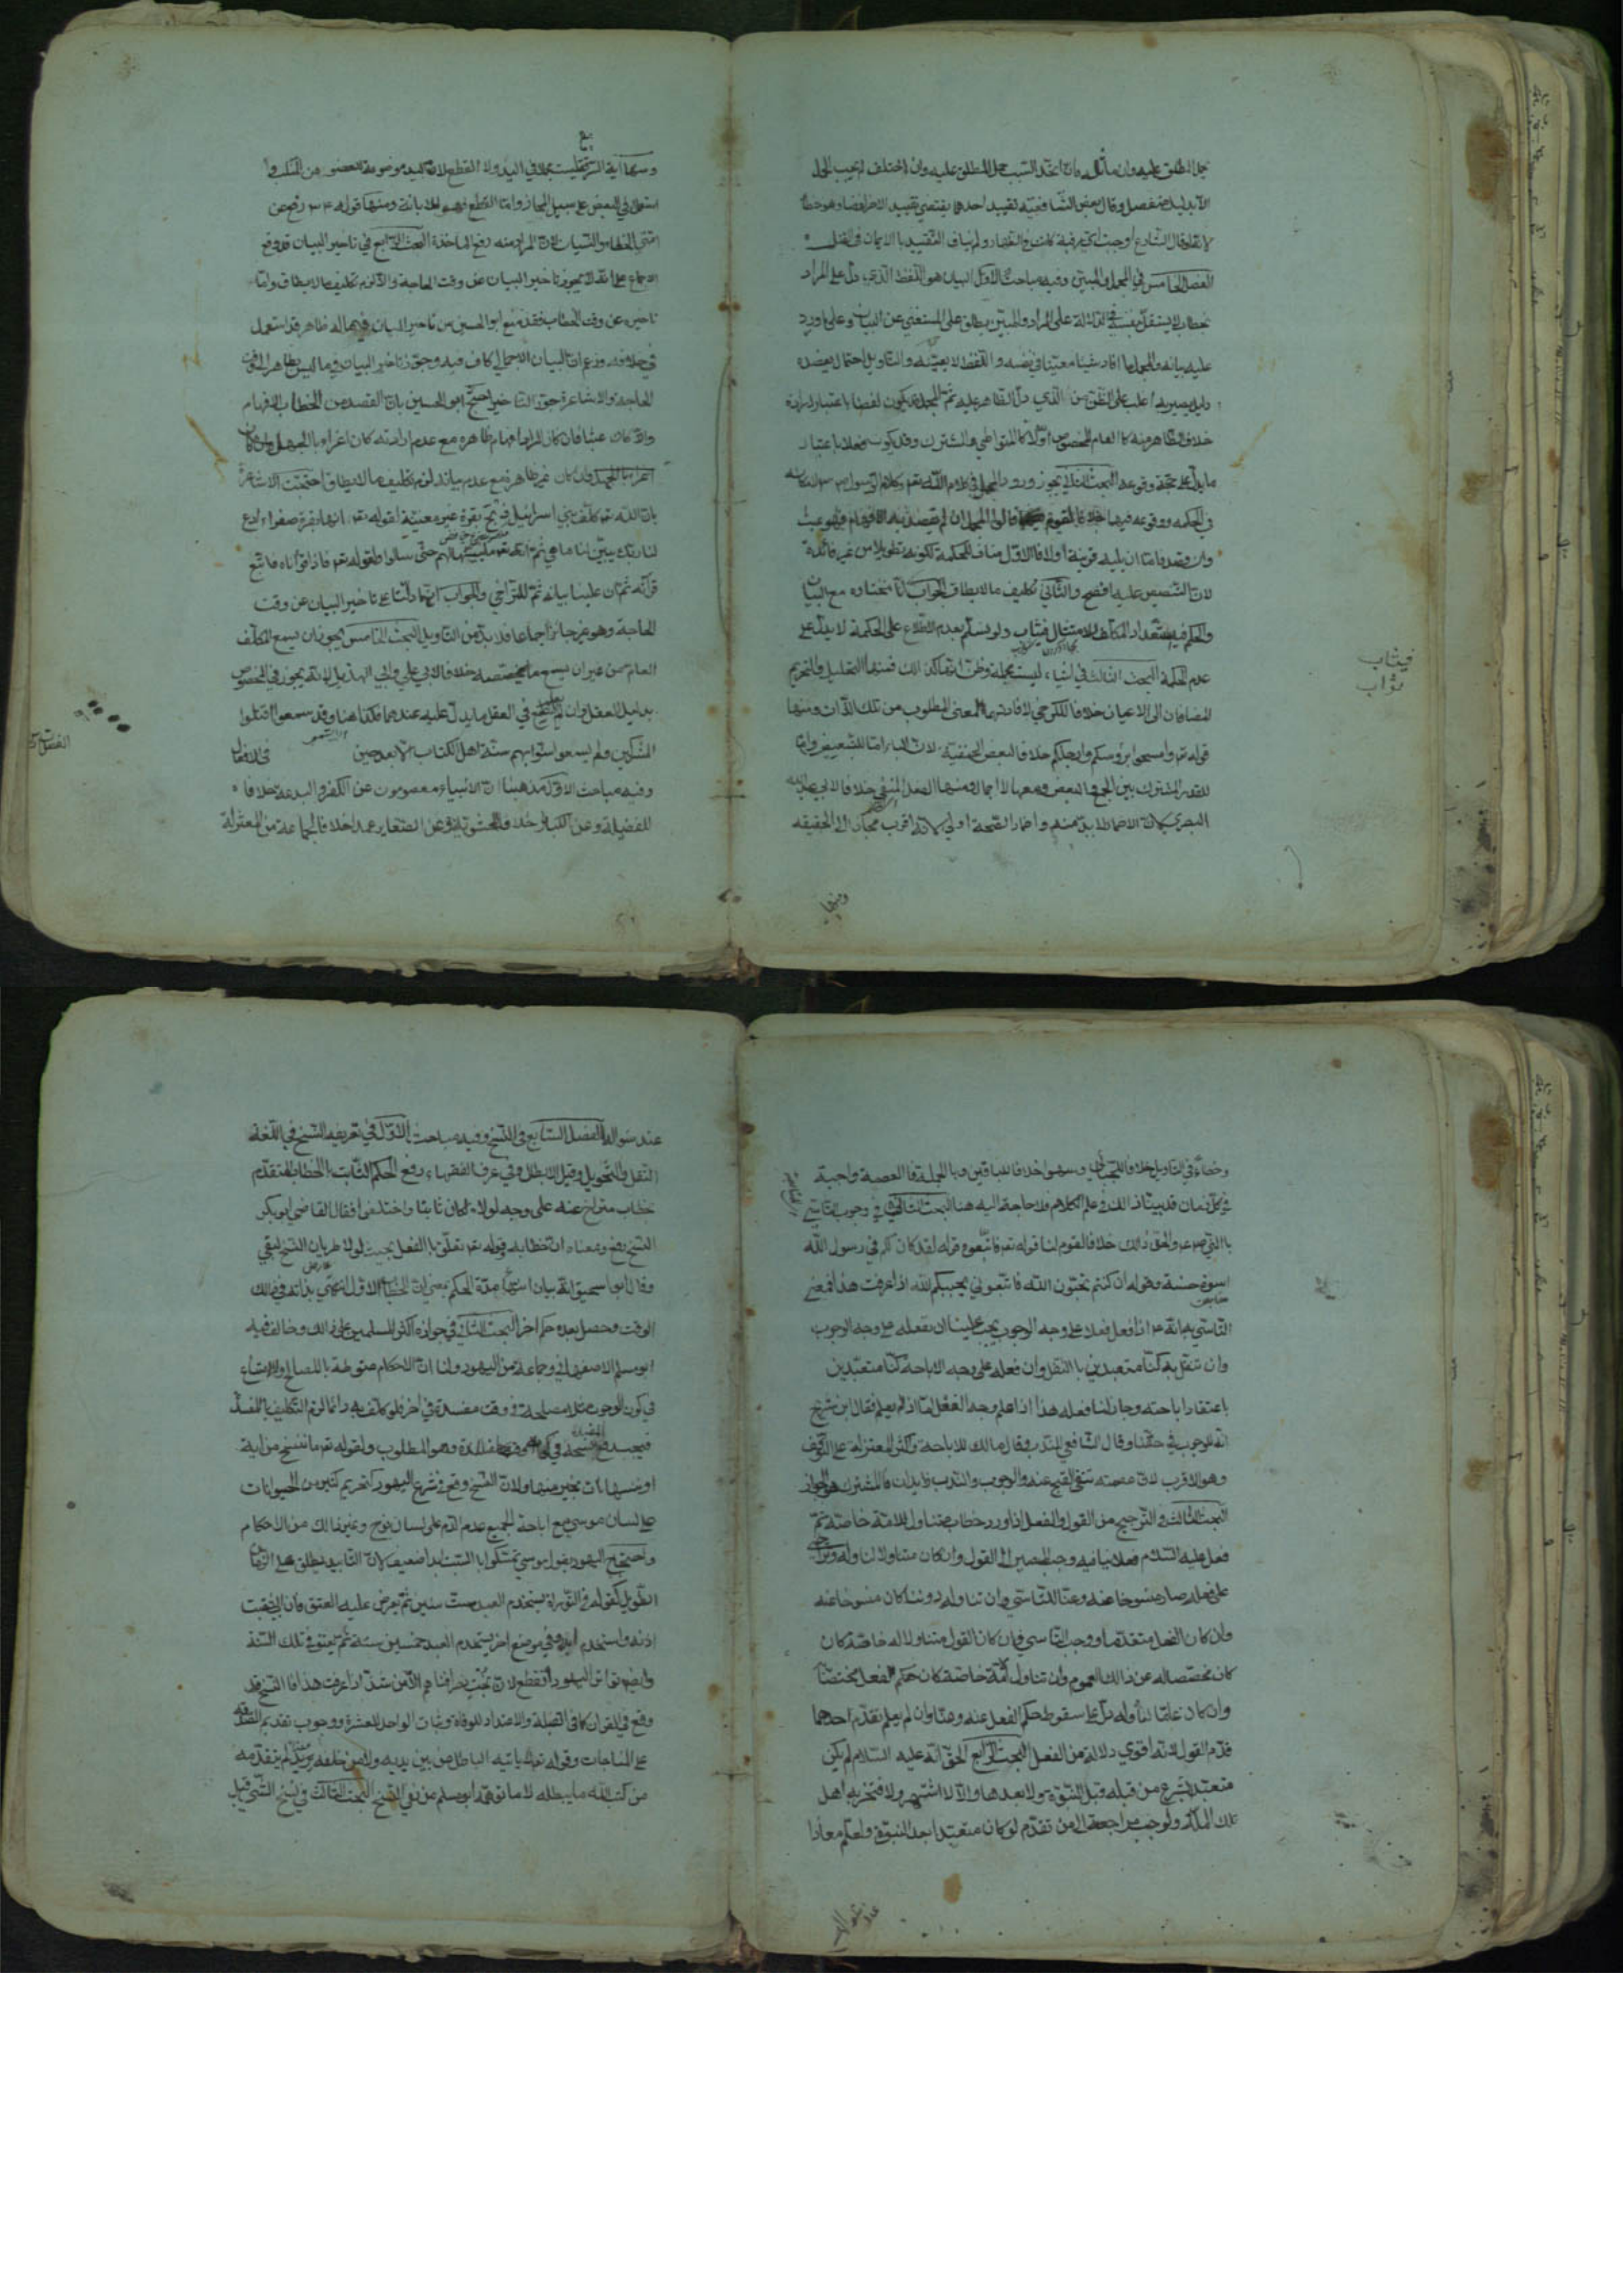 يحمل المطلق عليه وان تماثل فان اتحد السبب حمل المطلق عليه وان اختلف لم يجب الحمل
الا بدليل منفصل وقال بعض الشافعية تقييد احدهما يقتضي تقييد الاخر لفظا وهو خطأ
لانه لو قال الشارع اوجبت اي رقبة كانت في الظهار ولم يناف التقييد بالايمان في القتل
الفصل الخامس في المجمل والمبين وفيه مباحث الاول البيان هو اللفظ الذي دل على المراد
بخطاب لا يستقل بنفسه في الدلالة على المراد والمبين يطلق على المستغني عن البيان وعلى ما ورد
عليه بيانه والمجمل ما افاد شيئا معينا في نفسه واللفظ لا يعينه والتأويل احتمال يعضده
دليل يصير به اغلب على الظن من الذي دل الظاهر عليه ثم المجمل قد يكون لفظا باعتبار ارادة
خلاف الظاهر منه كالعام المخصوص او لا كالمتواطي والمشترك وقد يكون فعلا باعتبار
ما يدل على جهة وقوعه البحث الثاني يجوز ورود المجمل في كلام الله تعه وكلام الرسول
في الحكمة ووقوعه فيهما خلافا لقوم قالوا المجمل ان لم يقصد به الافهام فهو عبث
وان قصد فاما ان يليه قرينة او لا فالاول مناف للحكمة لكونه تطويلا من غير فائدة
لان التنصيص عليه افصح والثاني تكليف ما لا يطاق الجواب انا نختاره مع البيان
والحكم فيه استعداد المكلف للامتثال فيثاب ولو نسلم بعدم الاطلاع على الحكمة لا يدل على
عدم الحكمة البحث الثالث في اشياء ليست مجملة وظن انها كذلك فمنها التحليل والتحريم
المضافان الى الاعيان خلافا للكرخي لافادتهما المعنى المطلوب من تلك الذات ومنها
قوله تعه وامسحوا برؤسكم وارجلكم خلافا لبعض الحنفية لان الباء اما للتبعيض واما
للقدر المشترك بين الجميع والبعض ومعها لا اجمال ومنها الفعل المنفي خلافا لابي عبد الله
البصري لان الاضمار لا بد منه واضمار الصحة اولى لانه اقرب مجازا الى الحقيقة
فيثاب
ثواب
ومنها
ومنها آية السرقة ليست مجملا في اليد ولا القطع لان اليد موضوعة للعضو من المنكب وا
استعمل في البعض على سبيل المجاز واما القطع فهو الابانة ومنها قوله رفع عن
امتي الخطاء والنسيان لان المراد منه رفع المؤاخذة البحث الرابع في تاخير البيان قد وقع
الاجماع على انه لا يجوز تاخير البيان عن وقت الحاجة والا لزم تكليف ما لا يطاق واما
تاخيره عن وقت الخطاب فقد منع ابو الحسين من تاخير البيان فيما له ظاهر قد استعمل
في خلافه وزعم ان البيان الاجمالي كاف فيه وجوز تاخير البيان فيما ليس بظاهر الى وقت
الحاجة والاشاعرة جوزوا التاخير احتج ابو الحسين بان القصد من الخطاب الافهام
والا كان عبثا فان كان المراد افهام ظاهره مع عدم ارادته كان اغراء بالجهل وان كان
افهام غير ظاهره مع عدم بيانه لزم تكليف ما لا يطاق احتجت الاشاعرة
بان الله تعه كلف بني اسرائيل بذبح بقرة غير معينة لقوله تعه انها بقرة صفراء ادع
لنا ربك يبين لنا ما هي ثم انه تعه لم يبينها لهم حتى سالوا ولقوله تعه فاذا قراناه فاتبع
قرآنه ثم ان علينا بيانه ثم للتراخي والجواب انهما دلتا على تاخير البيان عن وقت
الحاجة وهو غير جائز اجماعا فلا بد من التأويل البحث الخامس يجوز ان يسمع المكلف
العام من غير ان يسمع ما يخصصه خلافا لابي علي وابي الهذيل لانه يجوز في المخصوص
بدليل العقل وان لم يكن السامع في العقل ما يدل عليه عندهما فكذا هنا وقد سمعوا اقتلوا
المشركين ولم يسمعوا سنوا بهم سنة اهل الكتاب الا بعد حين في الافعال
وفيه مباحث الاول مذهبنا ان الانبياء معصومون عن الكفر والبدعة خلافا
للفضيلية وعن الكبائر خلافا للحشوية وعن الصغاير عمدا خلافا لجماعة من المعتزلة
وخطاءً في التاويل خلافا للجبائي وسهوا خلافا للباقين وبالجملة فالعصمة واجبة
في كل زمان قد بينا ذلك في علم الكلام ولا حاجة اليه هنا البحث الثاني في وجوب التأسي
بالنبي والحق ذلك خلافا لقوم لنا قوله تعه فاتبعوه قوله لقد كان لكم في رسول الله
اسوة حسنة وقوله ان كنتم تحبون الله فاتبعوني يحببكم الله اذا عرفت هذا فمعنى
التأسي به انه اذا فعل فعلا على وجه الوجوب يجب علينا ان نفعله على وجه الوجوب
وان تنفل به كنا متعبدين بالنفل وان فعله على وجه الاباحة كنا متعبدين
باعتقاد اباحته وجاز لنا فعله هذا اذا علم وجه الفعل اما اذا لم يعلم فقال ابن سريج
انه للوجوب في حقنا وقال الشافعي للندب وقال مالك للاباحة واكثر المعتزلة على الوقف
وهو الاقرب لان عصمته تنفي القبح عنه والوجوب والندب زايدان فالمشترك هو الجواز
البحث الثالث في الترجيح من القول والفعل اذا ورد خطاب متناول للامة خاصة ثم
فعل عليه السلام فعلا ينافيه وجب المصير الى القول وان كان متناولا لنا وله وتراخى
على فعله صار منسوخا عنه وعنا للتأسي وان تناوله دوننا كان منسوخا عنه
وان كان الفعل متقدما ووجب التأسي فان كان القول متناولا له خاصة كان
كان مخصصا له عن ذلك العموم وان تناول امته خاصة كان حكم الفعل مختصا
وان كان عاما لنا وله دل على سقوط حكم الفعل عنه وعنا وان لم يعلم تقدم احدهما
قدم القول لانه اقوى دلالة من الفعل البحث الرابع الحق انه عليه السلام لم يكن
متعبدا بشرع من قبله قبل النبوة ولا بعدها والا لاشتهر ولافتخر به اهل
تلك الملة ولوجب مراجعة من تقدم لو كان متعبدا بعد النبوة ولعلم معاذا
عند سؤاله
عند سؤاله الفصل السابع في النسخ وفيه مباحث الاول في تعريفه النسخ في اللغة
النقل والتحويل وقيل الابطال وفي عرف الفقهاء رفع الحكم الثابت بالخطاب المتقدم
بخطاب متراخ عنه على وجه لولاه لكان ثابتا واختلفوا فقال القاضي ابو بكر
النسخ رفع ومعناه ان خطابه وقوله تعه تعلق بالفعل بحيث لولا طريان النسخ لبقي
وقال ابو اسحق انه بيان انتهاء مدة الحكم بمعنى ان الخطاب الاول انتهى بذاته في ذلك
الوقت وحصل بعده حكم اخر البحث الثاني في جوازه اكثر المسلمين على ذلك وخالف فيه
ابو مسلم الاصفهاني وجماعة من اليهود ولنا ان الاحكام منوطة بالمصالح ولا امتناع
في كون الوجوب مثلا مصلحة في وقت مفسدة في اخر فلو كلف به دائما لزم التكليف بالمفسد
وهو المطلوب ولقوله تعه ما ننسخ من اية
او ننسها نات بخير منها ولان النسخ وقع في شرع اليهود كتحريم كثير من الحيوانات
على لسان موسى مع اباحة الجميع عدم الدم على لسان نوح وغير ذلك من الاحكام
واحتج اليهود بقول موسى تمسكوا بالسبت ابدا ضعيف لان التابيد يطلق على الزمان
الطويل كقوله في التوراة يستخدم العبد ست سنين ثم يعرض عليه العتق فان ابى ثقبت
اذنه واستخدم ابدا وفي موضع اخر يستخدم العبد خمسين سنة ثم يعتق في تلك السنة
وايضا تواتر اليهود انقطع لان بخت نصر افناهم الا من شذ اذا عرفت هذا فالنسخ قد
وقع في القران كما في القبلة والاعتداد للوفاة وثبات الواحد للعشرة ووجوب تقديم الصدقة
على المناجات وقوله تعالى لا ياتيه الباطل من بين يديه ولا من خلفه يريد لم يتقدمه
من كتب الله ما يبطله لا ما توهمه ابو مسلم من نفي النسخ البحث الثالث في نسخ الشئ قبل